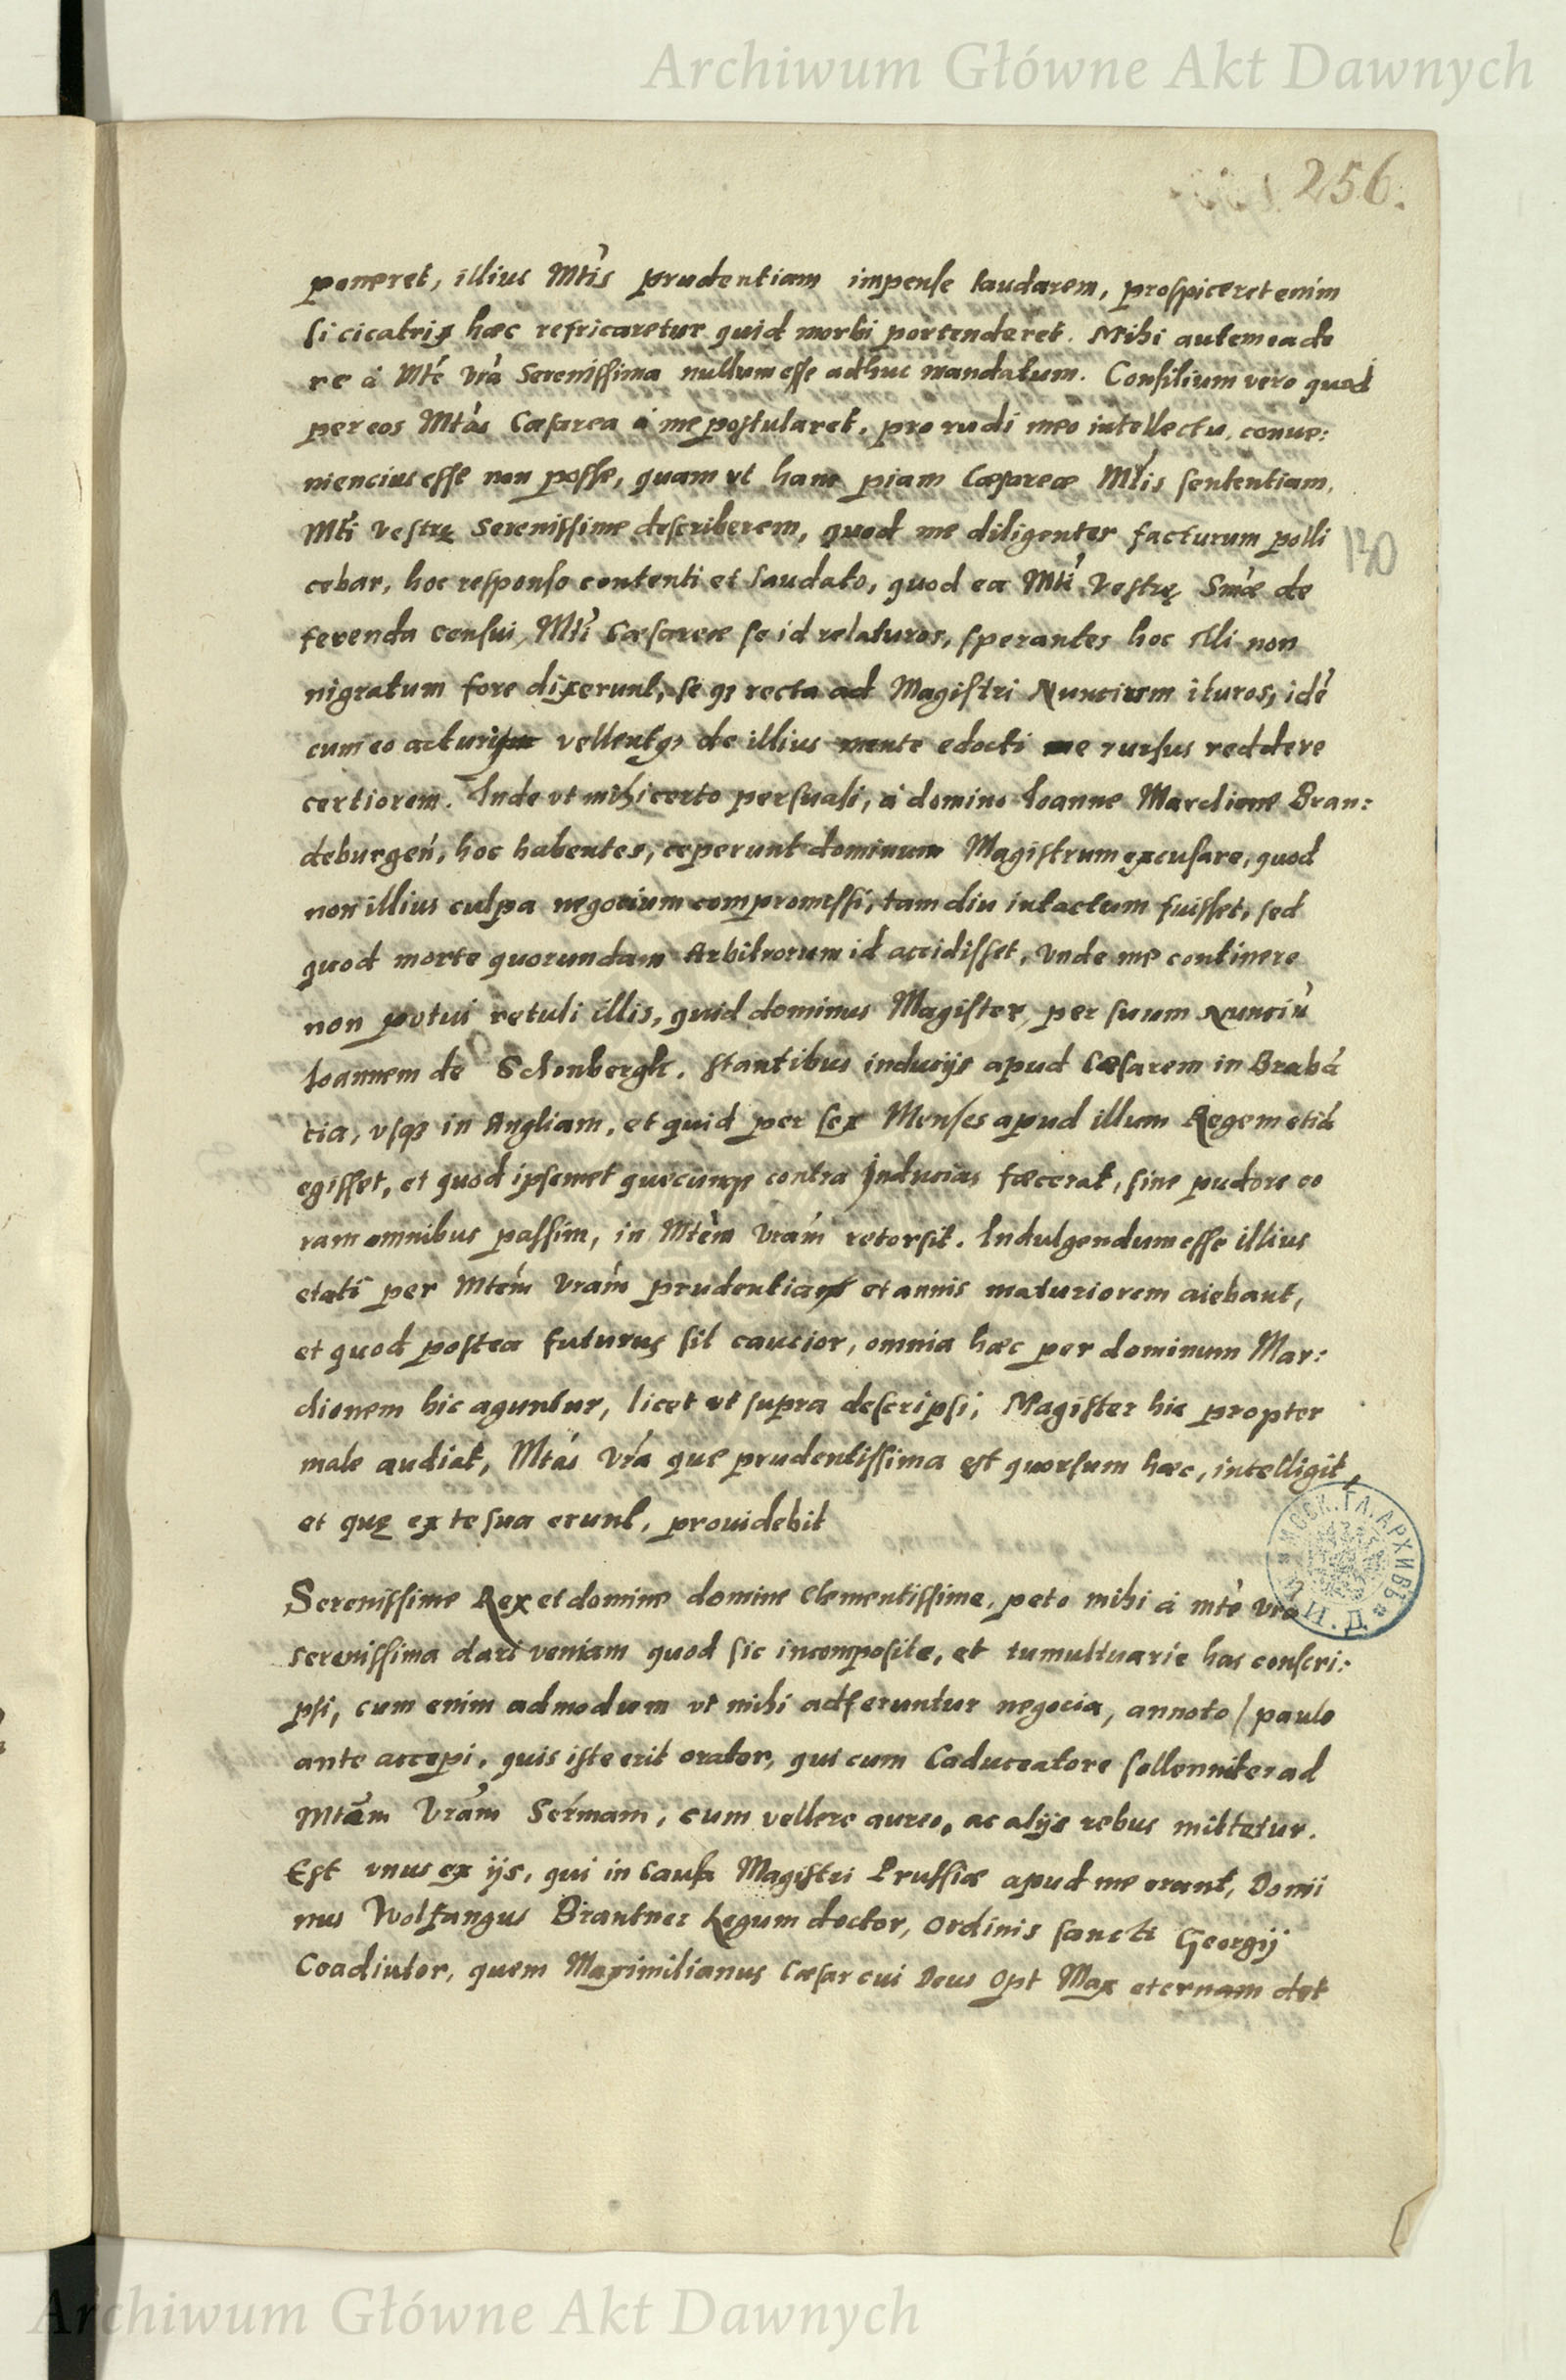 Archiwum Główne Akt Dawnych
256.
poneret, illius Mtis prudentiam impense laudarem, prospiceret enim
si cicatrix hæc refricaretur quid morbi portenderet. Mihi autem ea de
re à Mte Vra Serenissima nullum esse adhuc mandatum. Consilium vero quod
per eos Mtas Cæsarea à me postularet, pro rudi meo intellectu, conue:
niencius esse non posse, quam vt hanc piam Cæsareæ Mtis sententiam,
Mti Vestrę Serenissime describerem, quod me diligenter facturum polli
130
cebar, hoc responso contenti et laudato, quod ea Mti Vestrę Smæ de
ferenda censui, Mti Cæsareæ se id relaturos, sperantes hoc illi non
nigratum fore dixerunt, se qȝ recta ad Magistri Nuncium ituros, idē
cum eo acturi vellentqȝ de illius mente edocti me rursus reddere
certiorem. Inde vt mihi certo persuasi, à domino Ioanne Marchione Bran:
deburgeń, hoc habentes, ceperunt dominum Magistrum excusare, quod
non illius culpa negocium compromissi, tam diu intactum fuisset, sed
quod morte quorundam Arbitrorum id accidisset, Vnde me continere
non potui retuli illis, quid dominus Magister, per suum Nunciū
Ioannem de Schonbergk. stantibus inducijs apud Cæsarem in Brabā
tia, vsqȝ in Angliam, et quid per sex Menses apud illum Regem etiā
egisset, et quod ipsemet quecunqȝ contra Inducias fæcerat, sine pudore co
ram omnibus passim, in Mtem Vram retorsit. Indulgendum esse illius
etati per Mtem Vram prudentia et annis maturiorem aiebant,
et quod postea futurus sit caucior, omnia hæc per dominum Mar:
chionem hic aguntur, licet vt supra descripsi, Magister hic propter
male audiat, Mtas Vra que prudentissima est quorsum hæc, intelligit,
et quę ex re sua erunt, prouidebit
Serenissime Rex et domine domine Clementissime, peto mihi à mte Vra
serenissima dari veniam quod sic incomposite, et tumultuarie has conscri:
psi, cum enim admodum vt mihi adferuntur negocia, annoto / paulo
ante accepi, quis iste erit orator, qui cum Caduceatore sollenniter ad
Mtam Vram Sermam, cum vellere aureo, ac alijs rebus mittetur.
Est vnus ex ijs, qui in causa Magistri Prussiæ apud me erant, Domi
nus Wolfangus Brantner Legum doctor, Ordinis sancti Georgij
Coadiutor, quem Maximilianus Cæsar cui Deus Opt Max eternam det
МОСК. ГЛ. АРХИВЪ
Archiwum Główne Akt Dawnych